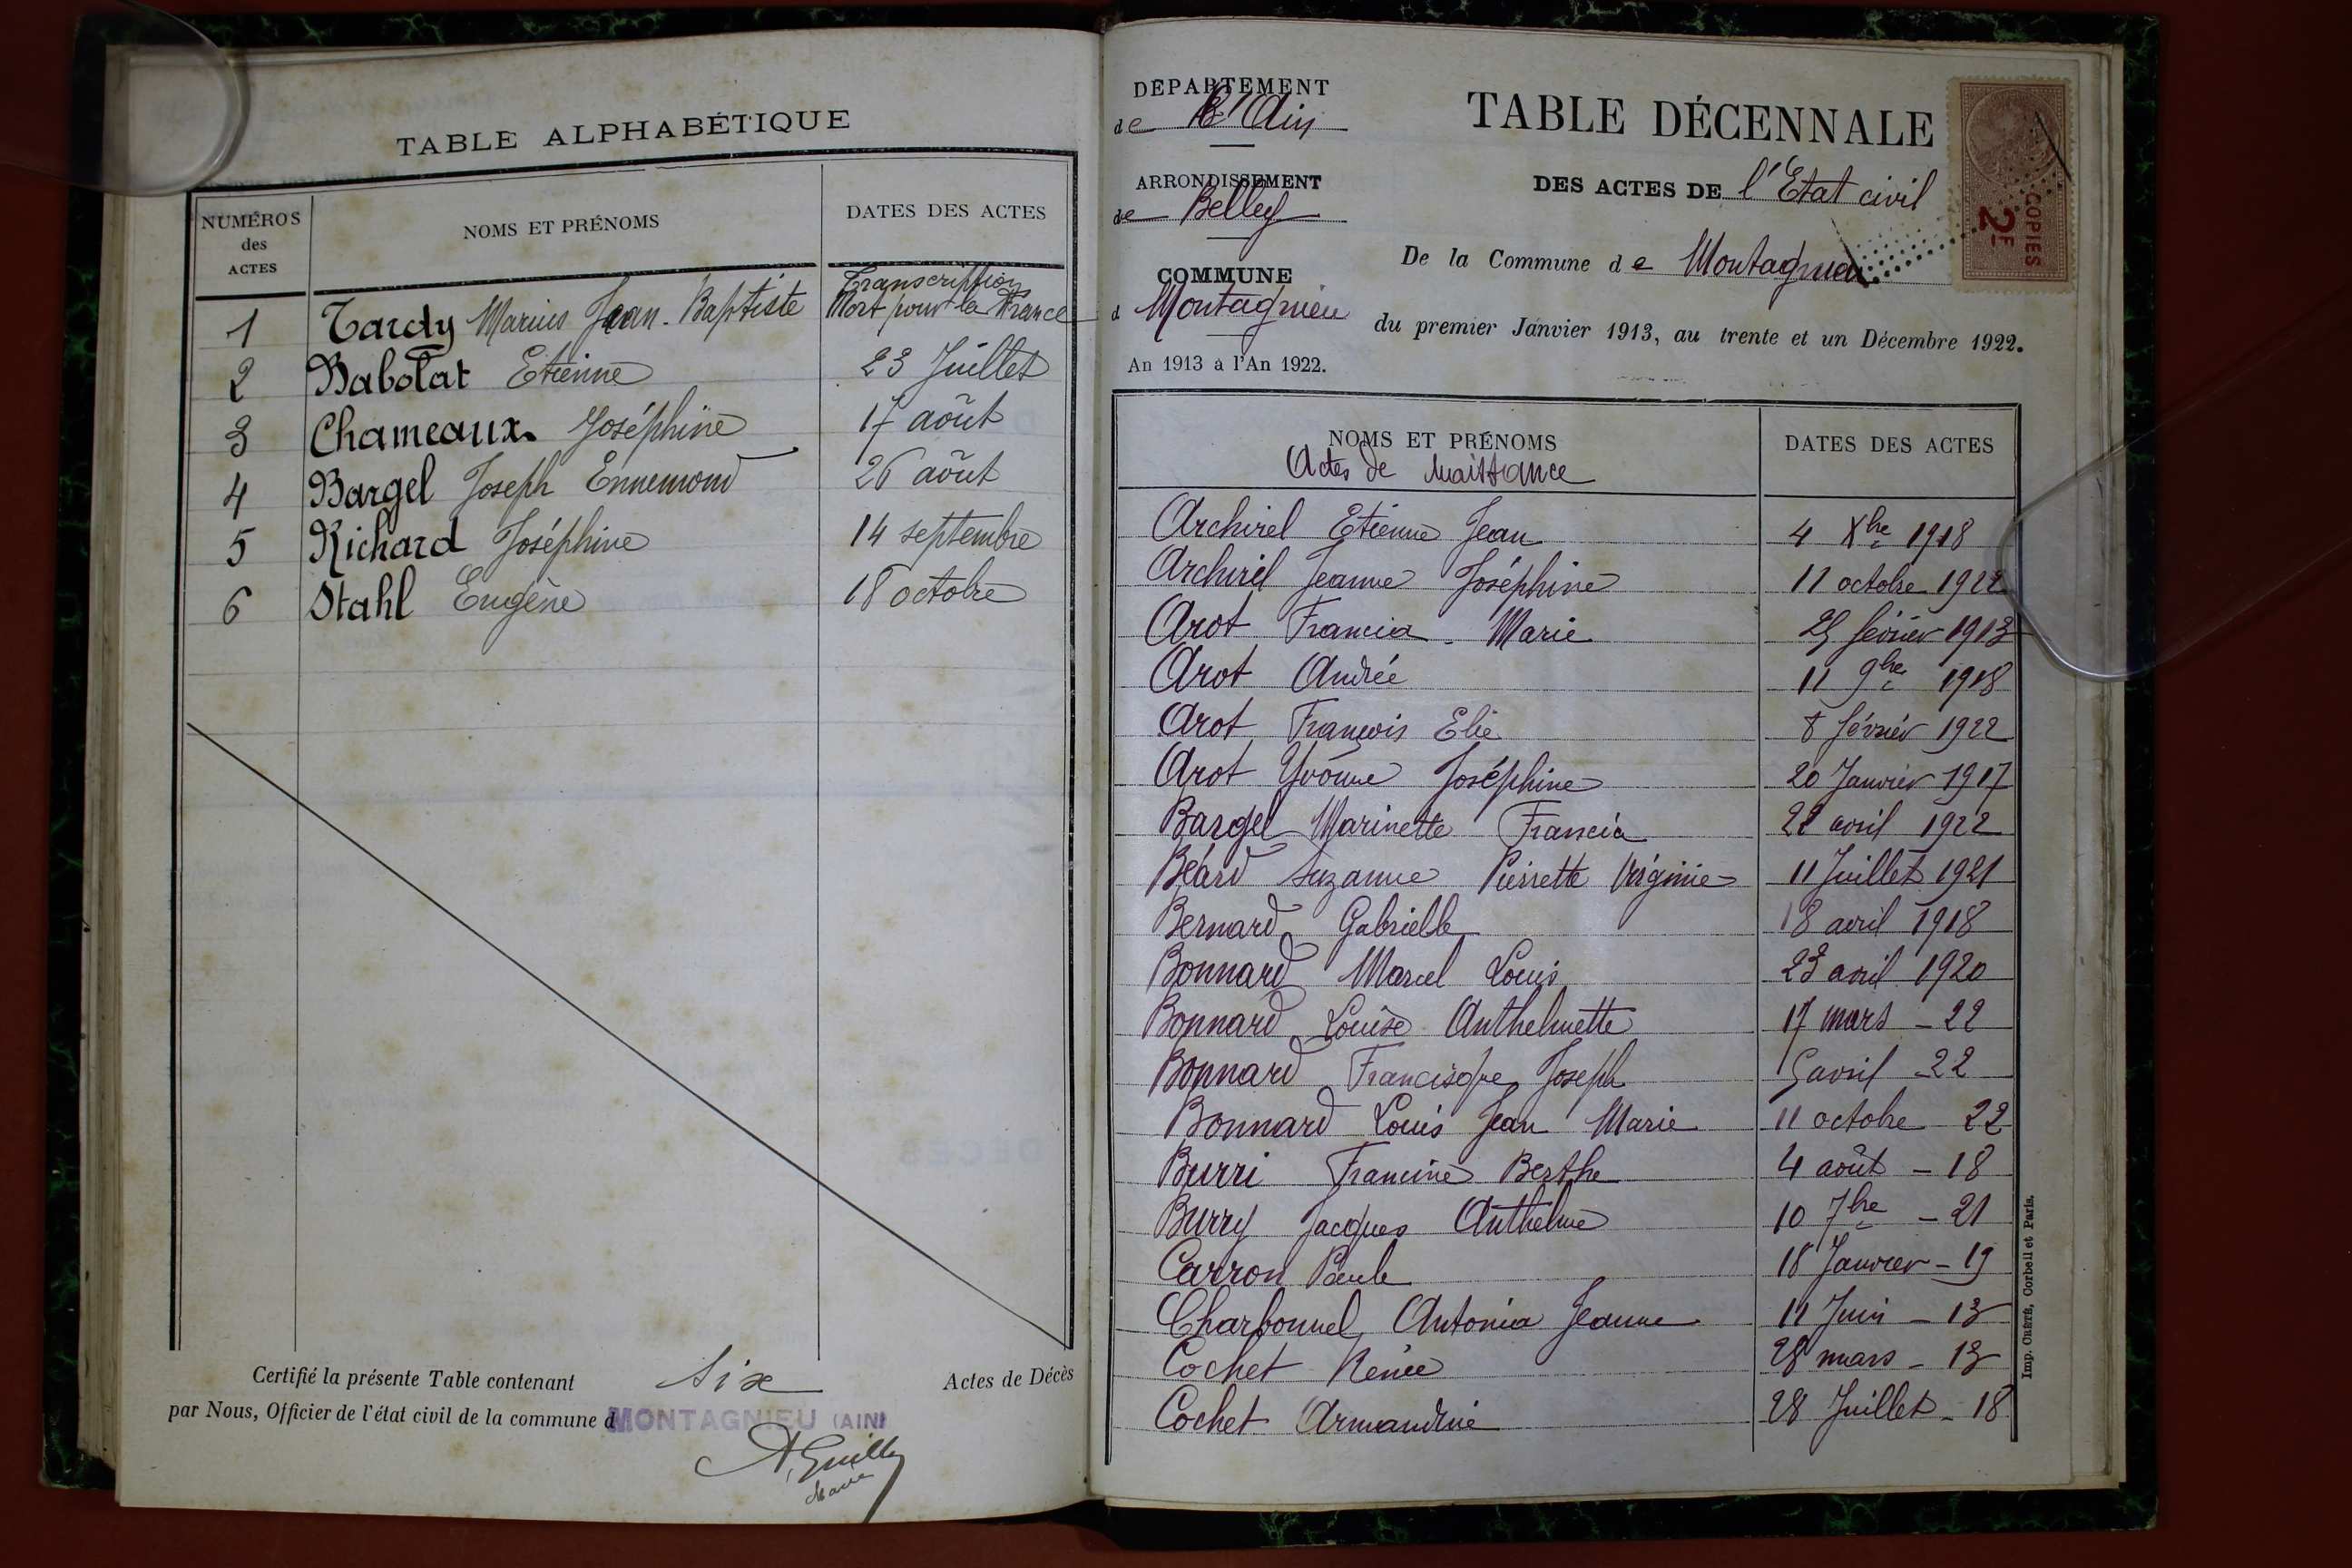 TABLE ALPHABÉTIQUE
NUMÉROS
des
ACTES
NOMS ET PRÉNOMS
DATES DES ACTES
Transcription
1 Tardy Marius Jean-Baptiste Mort pour la France
2 Babolat Etienne 23 Juillet
3 Chameaux Joséphine 17 août
4 Bargel Joseph Ennemond 26 août
5 Richard Joséphine 14 septembre
6 Stahl Eugène 18 octobre
Certifié la présente Table contenant six Actes de Décès
par Nous, Officier de l'état civil de la commune d MONTAGNIEU (AIN)
Maire
DÉPARTEMENT
de l'Ain
ARRONDISSEMENT
de Belley
COMMUNE
d Montagnieu
An 1913 à l'An 1922.
TABLE DÉCENNALE
DES ACTES DE l'Etat civil
De la Commune de Montagnieu
du premier Janvier 1913, au trente et un Décembre 1922.
COPIES
2F
NOMS ET PRÉNOMS
DATES DES ACTES
Actes de Naissance
Archirel Etienne Jean 4 Xbre 1918
Archirel Jeanne Joséphine 11 octobre 1922
Arot Francia Marie 25 février 1913
Arot Andrée 11 9bre 1918
Arot François Elie 8 février 1922
Arot Yvonne Joséphine 20 Janvier 1917
Bargel Marinette Francia 22 avril 1922
Béard Suzanne Pierrette Virginie 11 Juillet 1921
Bernard Gabrielle 18 avril 1918
Bonnard Marcel Louis 23 avril 1920
Bonnard Louise Anthelmette 17 mars - 22
Bonnard Francisque Joseph 5 avril - 22
Bonnard Louis Jean Marie 11 octobre 22
Burri Francine Berthe 4 août - 18
Burry Jacques Anthelme 10 7bre - 21
Carron Paule 18 Janvier - 19
Charbonnel Antonia Jeanne 11 Juin - 13
Cochet Renée 28 mars - 13
Cochet Armandine 28 Juillet - 18
Imp. Crété, Corbeil et Paris.